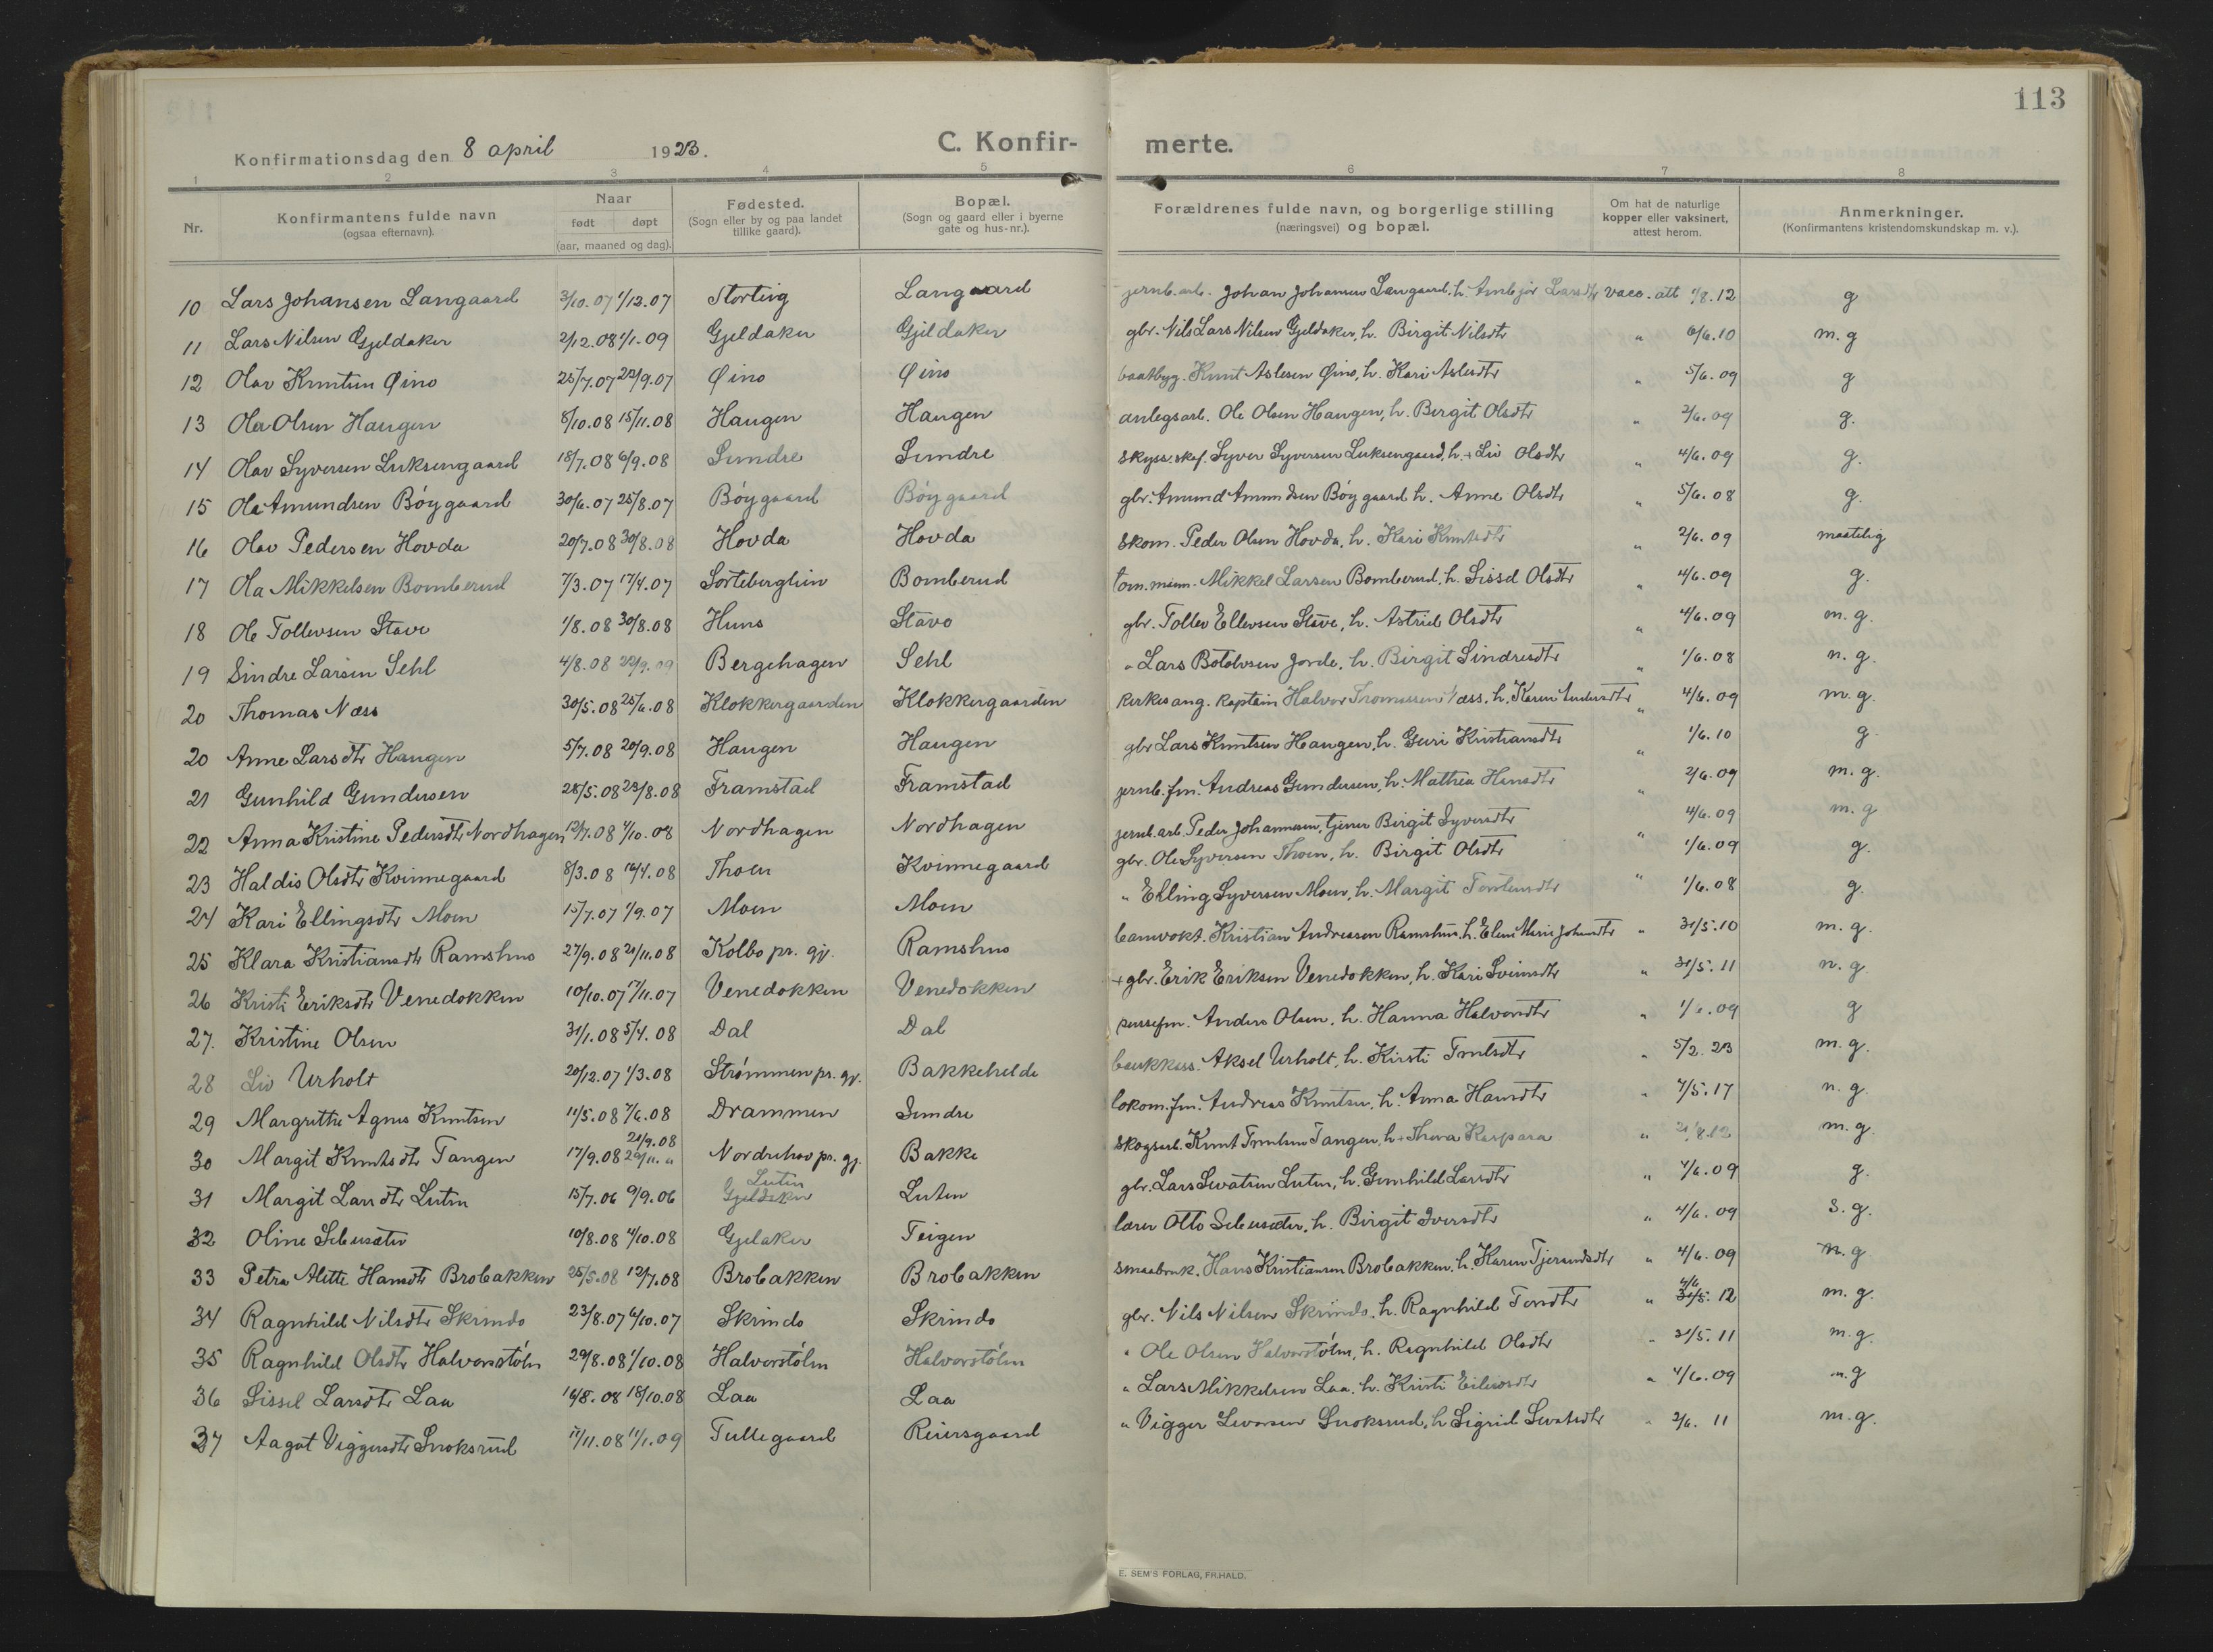 113
Konfirmationsdag den 8 april 1923.
C. Konfir- merte.
1 2 3 4 5 6 7 8
Nr. Konfirmantens fulde navn (ogsaa efternavn). Naar født døpt (aar, maaned og dag). Fødested. (Sogn eller by og paa landet tillike gaard). Bopæl. (Sogn og gaard eller i byerne gate og hus-nr.). Forældrenes fulde navn, og borgerlige stilling (næringsvei) og bopæl. Om hat de naturlige kopper eller vaksinert, attest herom. Anmerkninger. (Konfirmantens kristendomskundskap m. v.).
10 Lars Johansen Langaard 3/10.07 1/12.07 Storteig Langaard jernb.arb. Johan Johansen Langaard, h. Ambjør Larsdtr vacc. att 1/8.12 g
11 Lars Nilsen Gjeldaker 2/12.08 1/1.09 Gjeldaker Gjeldaker gbr. Nils Lars Nilsen Gjeldaker, h. Birgit Nilsdtr " 6/6.10 m.g
12 Olav Knutsen Øino 25/7.07 22/9.07 Øino Øino baatbyg. Knut Aslesen Øino, h. Kari Aslesdtr " 5/6.09 g
13 Ola Olsen Haugen 8/10.08 15/11.08 Haugen Haugen anlegsarb. Ole Olsen Haugen, h. Birgit Olsdtr " 2/6.09 g.
14 Olav Syversen Luksengaard 18/7.08 6/9.08 Sundre Sundre skyss.skaf. Syver Syversen Luksengaard, h. + Liv Olsdtr " 4/6.09 g.
15 Ole Amundsen Bøygaard 30/6.07 25/8.07 Bøygaard Bøygaard gbr. Amund Amundsen Bøygaard h. Anne Olsdtr " 5/6.08 g.
16 Olav Pedersen Hovda 20/7.08 30/8.08 Hovda Hovda skom. Peder Olsen Hovda, h. Kari Knutsdtr " 2/6.09 maatelig
17 Ola Mikkelsen Bomberud 7/3.07 17/4.07 Sorteberglien Bomberud tøm.mem. Mikkel Larsen Bomberud, h. Sissel Olsdtr " 4/6.09 g.
18 Ole Tollevsen Stave 1/8.08 30/8.08 Huns Stavo gbr. Tollev Ellevsen Stave, h. Astrid Olsdtr " 4/6.09 m.g.
19 Sindre Larsen Sehl 4/8.08 22/9.09 Bergehagen Sehl " Lars Botolvsen Jorde, h. Birgit Sindresdtr " 1/6.08 n.g.
20 Thomas Næss 30/5.08 25/6.08 Klokkergaarden Klokkergaarden kirkesang. kaptein Halvor Thomessen Næss, h. Karen Andersdtr " 4/6.09 m.g.
20 Anne Larsdtr Haugen 5/7.08 20/9.08 Haugen Haugen gbr Lars Knutsen Haugen, h. Guri Kristiansdtr " 1/6.10 g
21 Gunhild Gundersen 28/5.08 23/8.08 Framstad Framstad jernb.fm. Andreas Gundersen, h. Mathea Hansdtr " 2/6.09 m.g.
22 Anna Kristine Pedersdtr Nordhagen 12/7.08 4/10.08 Nordhagen Nordhagen jernb.arb. Peder Johannesen, tjener Birgit Syversdtr " 4/6.09 m.g
23 Haldis Olsdtr Kvinnegaard 8/3.08 16/4.08 Thoen Kvinnegaard gbr. Ole Syversen Thoen, h. Birgit Olsdtr " 1/6.09 g.
24 Kari Ellingsdtr Moen 15/7.07 1/9.07 Moen Moen " Elling Syversen Moen, h. Margit Torsteinsdtr 1/6.08 g.
25 Klara Kristiansdtr Ramshus 27/9.08 21/11.08 Kolbo pr. gj. Ramshus banvokt. Kristian Andreasen Ramshus, h. Eline Marie Johansdtr " 31/5.10 m.g.
26 Kristi Eriksdtr Venedokken 10/10.07 17/11.07 Venedokken Venedokken + gbr. Erik Eriksen Venedokken, h. Kari Sveinsdtr " 31/5.11 n.g.
27. Kristine Olsen 31/1.08 5/4.08 Dal Dal pussefm. Anders Olsen, h. Hanna Halvorsdtr " 1/6.09 g
28 Liv Urholt 20/12.07 1/3.08 Strømmen pr. gj. Bakkehelde bankkass. Aksel Urholt, h. Kirsti Trulsdtr " 5/2.23 m.g.
29 Margrethe Agnes Knutsen 11/5.08 7/6.08 Drammen Sundre lokom.fm. Andreas Knutsen, h. Anna Hansdtr " 7/5.17 n.g.
30 Margit Knutsdtr Tangen 17/9.08 21/9.08 29/11. " Norderhov pr. gj. Bakke skogsarb. Knut Trulsen Tangen, h + Thora Kaspara " 21/8.12 m.g.
31 Margit Larsdtr Luten 15/7.06 9/9.06 Lutin Gjeldaker Luten gbr. Lars Sevatsen Luten, h. Gunhild Larsdtr " 4/6.09 g.
32 Oline Seheusæter 10/8.08 4/10.08 Gjelaker Teigen lærer Otto Seheusæter, h. Birgit Iversdtr " 4/6.09 s.g.
33 Petra Alette Hansdtr Brobakken 25/5.08 12/7.08 Brobakken Brobakken smaabruk. Hans Kristiansen Brobakken, h. Karen Tjerandsdtr " 4/6.09 m.g
34 Ragnhild Nilsdtr Skrindo 23/8.07 6/10.07 Skrindo Skrindo gbr. Nils Nilsen Skrindo, h. Ragnhild Torsdtr " 4/6 31/5.12 m.g.
35 Ragnhild Olsdtr Halvorstøln 29/8.08 1/10.08 Halvorstøln Halvorstøln " Ole Olsen Halvorstøln, h. Ragnhild Olsdtr " 31/5.11 m.g.
36 Sissel Larsdtr Laa 16/8.08 18/10.08 Laa Laa " Lars Mikkelsen Laa, h. Kristi Eilevsdtr " 4/6.09 m.g
37 Aagot Viggersdtr Snoksrud 17/11.08 11/1.09 Tullegaard Reiersgaard " Vigger Levorsen Snoksrud, h Sigrid Sevatsdtr " 2/6.11 m.g.
E. SEM'S FORLAG, FR.HALD.